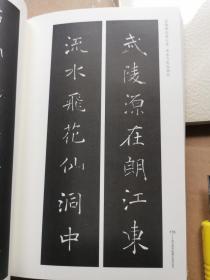 武陵源在朗江東
流水飛花仙洞中